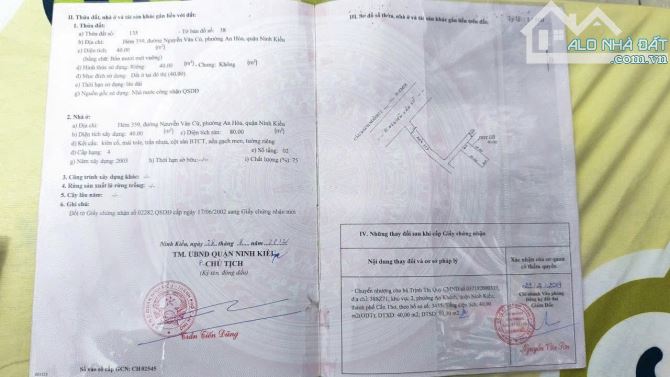 II. Thửa đất, nhà ở và tài sản khác gắn liền với đất:
1. Thửa đất:
a) Thửa đất số: 133 - Tờ bản đồ số: 38
b) Địa chỉ: Hẻm 359, đường Nguyễn Văn Cừ, phường An Hòa, quận Ninh Kiều
c) Diện tích: 40.00 (m²)
(bằng chữ: Bốn mươi mét vuông)
d) Hình thức sử dụng: Riêng: 40.00 (m²) - Chung: Không (m²)
đ) Mục đích sử dụng: Đất ở tại đô thị (40.00)
e) Thời hạn sử dụng: lâu dài
g) Nguồn gốc sử dụng: Nhà nước công nhận QSDĐ
2. Nhà ở:
a) Địa chỉ: Hẻm 359, đường Nguyễn Văn Cừ, phường An Hòa, quận Ninh Kiều
b) Diện tích xây dựng: 40.00 (m²) c) Diện tích sàn: 80.00 (m²)
d) Kết cấu: kiên cố, mái tole, trần nhựa, cột sàn BTCT, nền gạch men, tường riêng
đ) Cấp hạng: 4 e) Số tầng: 02
g) Năm xây dựng: 2003 h) Thời hạn sở hữu: -/- i) Chất lượng (%): 75
3. Công trình xây dựng khác: -/-
4. Rừng sản xuất là rừng trồng: -/-
5. Cây lâu năm: -/-
6. Ghi chú:
Đổi từ Giấy chứng nhận số 02282.QSDĐ cấp ngày 17/06/2002 sang Giấy chứng nhận mới
Ninh Kiều, ngày tháng năm
TM. UBND QUẬN NINH KIỀU
CHỦ TỊCH
(Ký tên, đóng dấu)
Trần Tiến Dũng
Số vào sổ cấp GCN: CH 02545
III. Sơ đồ thửa đất, nhà ở và tài sản khác gắn liền với đất:
ALO NHÀ ĐẤT
.com.vn
IV. Những thay đổi sau khi cấp Giấy chứng nhận
Nội dung thay đổi và cơ sở pháp lý
Xác nhận của cơ quan
có thẩm quyền
- Chuyển nhượng cho bà Trịnh Thị Quy CMND số
địa chỉ: khu vực 2, phường An Khánh, quận Ninh Kiều,
thành phố Cần Thơ, theo hồ sơ số: diện tích: 40,00
m2(ODT); DTXD: 40,00 m2; DTSD:
Chi nhánh Văn phòng
Đăng ký đất đai
Giám Đốc